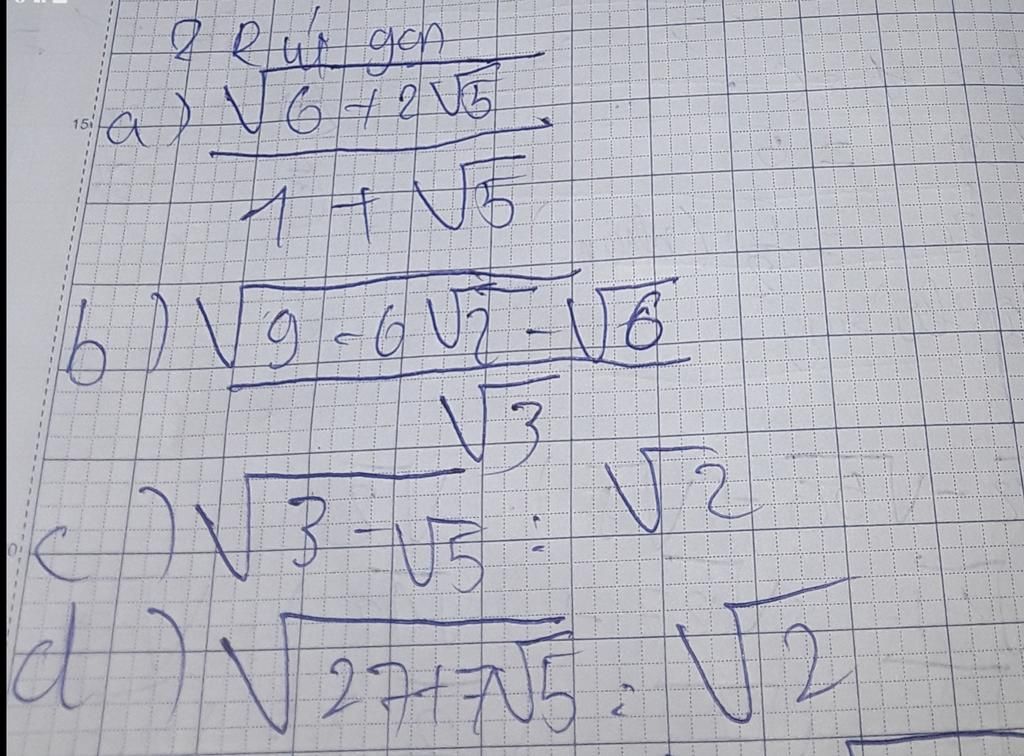 2 Rút gọn
a) √(6 + 2√5) / (1 + √5)
b) (√(9 - 6√2) - √6) / √3
c) √(3 - √5) : √2
d) √(27 + 7√5) : √2